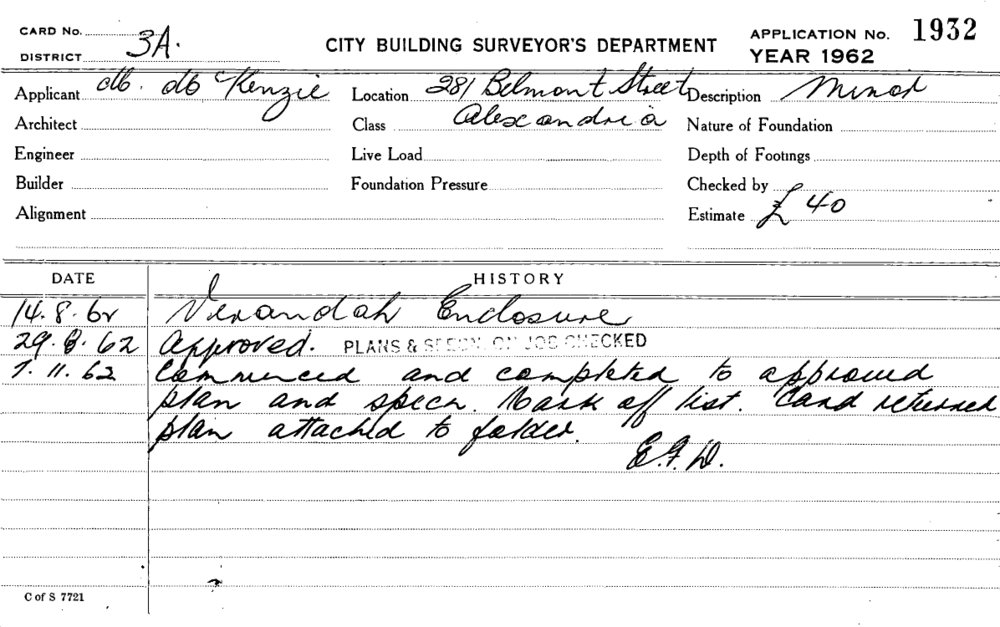 CARD No.
DISTRICT 3A.
CITY BUILDING SURVEYOR'S DEPARTMENT
APPLICATION No. 1932
YEAR 1962
Applicant M. McKenzie Location 281 Belmont Street Description Minor
Architect Class Alexandria Nature of Foundation
Engineer Live Load Depth of Footings
Builder Foundation Pressure Checked by
Alignment Estimate £40
DATE HISTORY
14.8.62 Verandah Enclosure
29.8.62 Approved. PLANS & SPECN. ON JOB CHECKED
7.11.62 Commenced and completed to approved
plan and specn. Mark off list. Card returned
plan attached to folder.
E.F.D.
C of S 7721